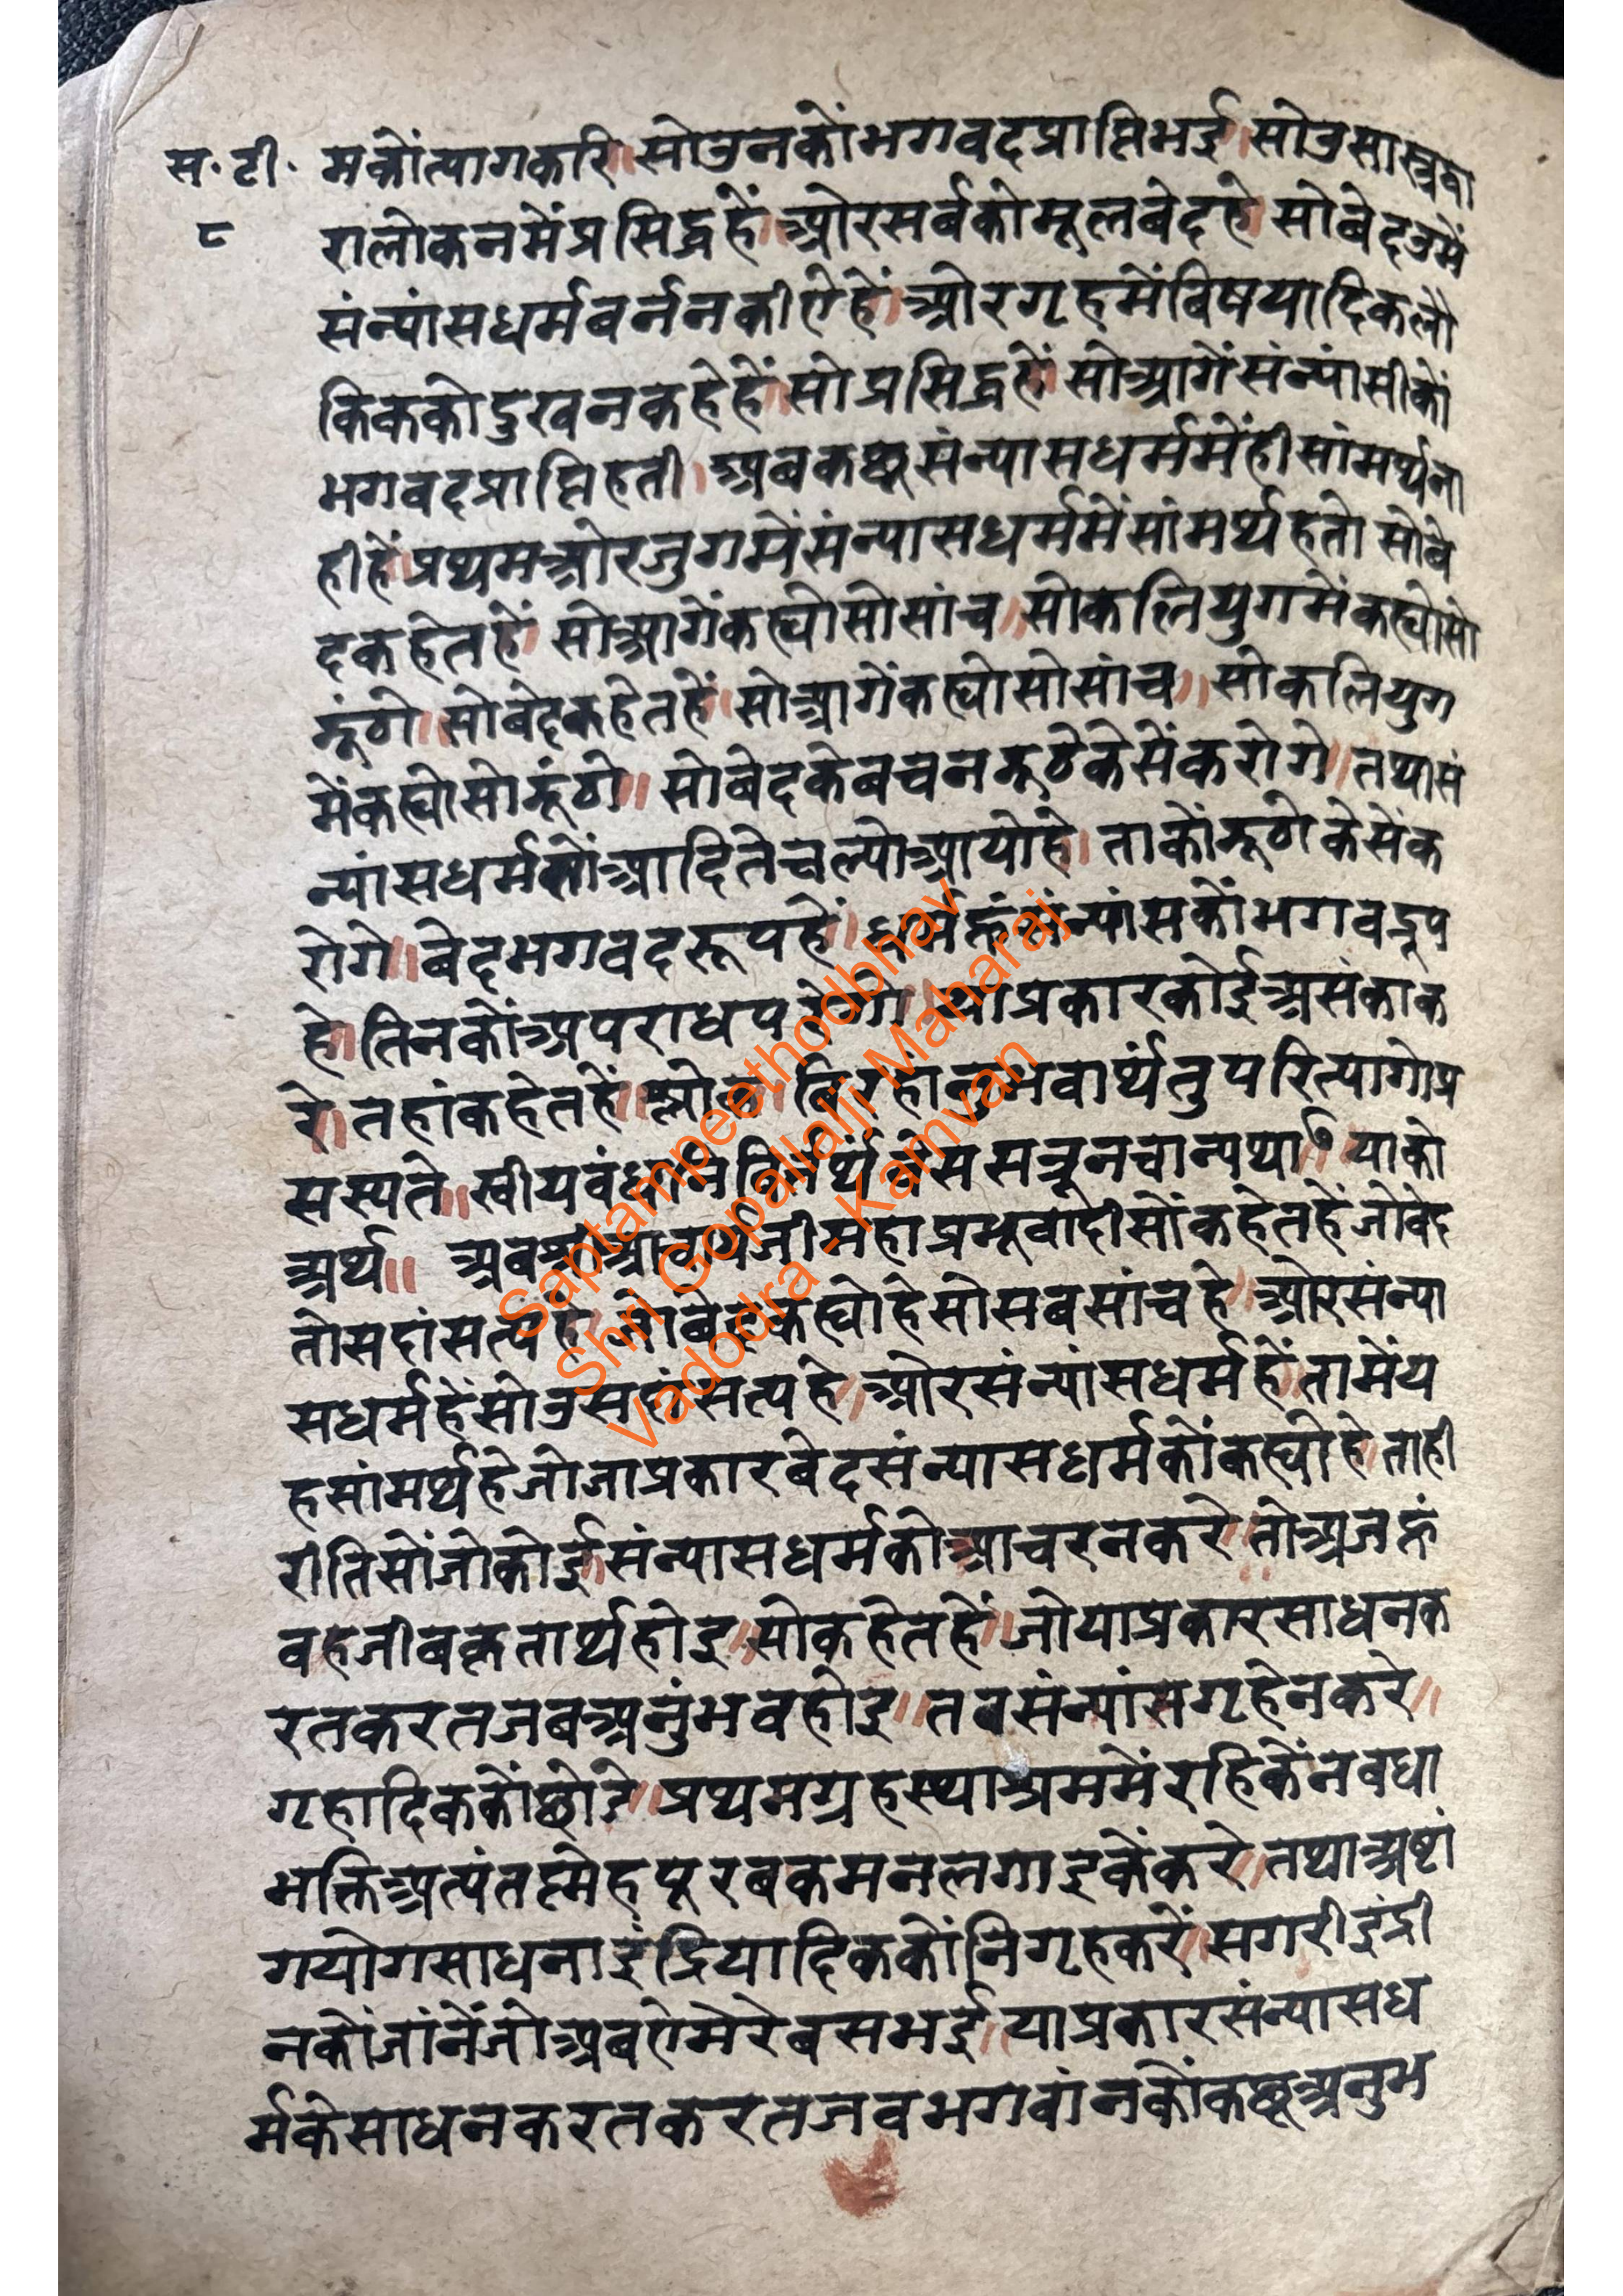 स॰टी॰ मकोंत्यागकरि॥सोउनकोंभगवदप्राप्तिभई॥सोउसास्त्रद्वा
८ रालोकनमेंप्रसिद्धहें॥ओरसर्बकोमूलबेदहे॥सोबेदउमें
संन्यांसधर्मबर्ननकीऐहें॥ओरगृहमेंबिषयादिकलौ
किककोदुखनकहेहें॥सोप्रसिद्धहें॥सोआगेंसंन्यांसीकों
भगवदप्राप्तिहती॥अबकछूसंन्यासधर्ममेंहीसांमर्थ्यना
हीहें॥प्रथमओरजुगमेंसंन्यासधर्ममेंसांमर्थ्यहतो सोबे
दकहेतहें॥सोआगेंकह्योसोसांच॥सोकलियुगमेंकह्योसो
झूंठो॥सोबेदकहेतहें॥सोआगेंकह्योसोसांच॥सोकलियुग
मेंकह्योसोझूंठो॥सोबेदकेबचनझूठेकेसेंकरोगे॥तथासं
न्यांसधर्मतोंआदितेचल्योआयोहे॥ताकोंझूठोकेसेंक
रोगे॥बेदभगवदरूपहें॥धर्महूंसंन्यांसकोंभगवद्रूप
हे॥तिनकोंअपराधपरेगो॥याप्रकारकोईअसंकाक
रे॥तहांकहेतहें॥श्लोक॥बिरहांनुभवार्थंतुपरित्यागोप्र
सस्यते॥स्वीयबंधनिवित्यर्थंबेससन्नूनचान्यथा७॥याको
अर्थ॥ अबश्रीआचार्यजीमहाप्रभूवादीसोंकहेतहेंजोबेद
तोसदांसत्यहे॥जोबेदकह्योहेसोसबसांचहे॥ओरसंन्या
सधर्महेंसोउसदांसत्यहे॥ओरसंन्यांसधर्महें॥तामेंय
हसांमर्थ्यहेजोजाप्रकारबेदसंन्यासधर्मकोंकह्योहे॥ताही
रीतिसोंजोकोई॥संन्यासधर्मकोआचरनकरे॥तोअजहूं
वहजीबकृतार्थहोइ॥सोकहेतहें॥जोयाप्रकारसाधनक
रतकरतजबअनुंभवहोइ॥तबसंन्यांसगृहेनकरे॥
गृहादिककोंछोडे॥प्रथमग्रहस्थाश्रममेंरहिकेंनबधा
भक्तिअत्यंतस्नेहपूरबकमनलगाइकेंकरे॥तथाअष्टां
गयोगसाधनाइंद्रियादिककोंनिगृहकरें॥सगरीइंद्री
नकोंजांनेंजोअबऐमेरेबसभई॥याप्रकारसंन्यासध
र्मकेसाधनकरतकरतजबभगवांनकोंकछूअनुभ
Saptampeethodbhav
Shri Gopallalji Maharaj
Vadodra - Kamvan